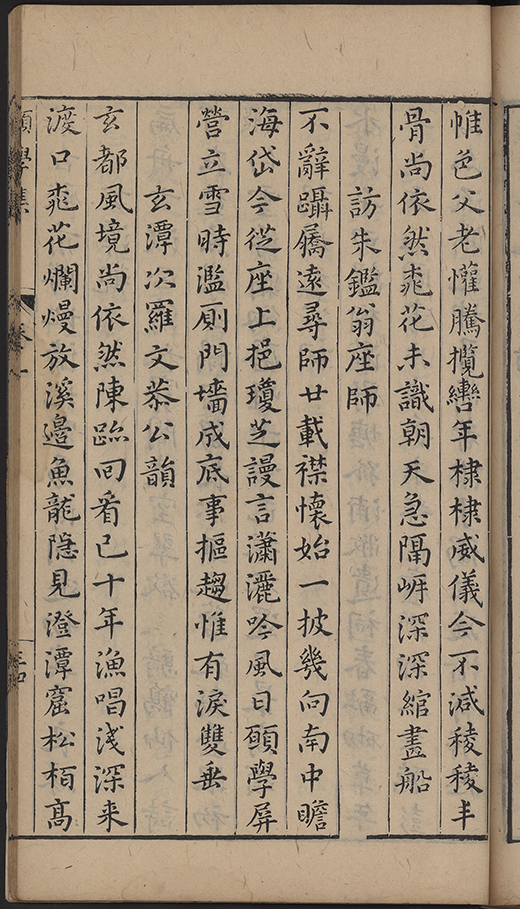 帷色父老懽騰攬轡年棣棣威儀今不減稜稜丰
骨尚依然桃花未識朝天急隔㟁深深綰畫船
訪朱鑑翁座師
不辭躡屩遠尋師廿載襟懷始一披幾向南中瞻
海岱今從座上挹瓊芝謾言瀟灑吟風日願學屏
營立雪時濫厠門墻成底事摳趨惟有淚雙垂
玄潭次羅文恭公韻
玄都風境尚依然陳跡回看已十年漁唱淺深来
渡口桃花爛熳放溪邉魚龍隠見澄潭窟松栢髙
願學集
卷一